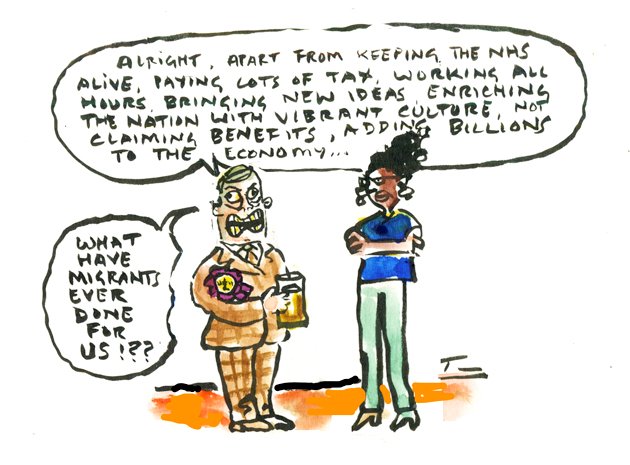 ALRIGHT, APART FROM KEEPING THE NHS
ALIVE, PAYING LOTS OF TAX, WORKING ALL
HOURS, BRINGING NEW IDEAS ENRICHING
THE NATION WITH VIBRANT CULTURE, NOT
CLAIMING BENEFITS, ADDING BILLIONS
TO THE ECONOMY...
WHAT
HAVE
MIGRANTS
EVER
DONE
FOR
US!??